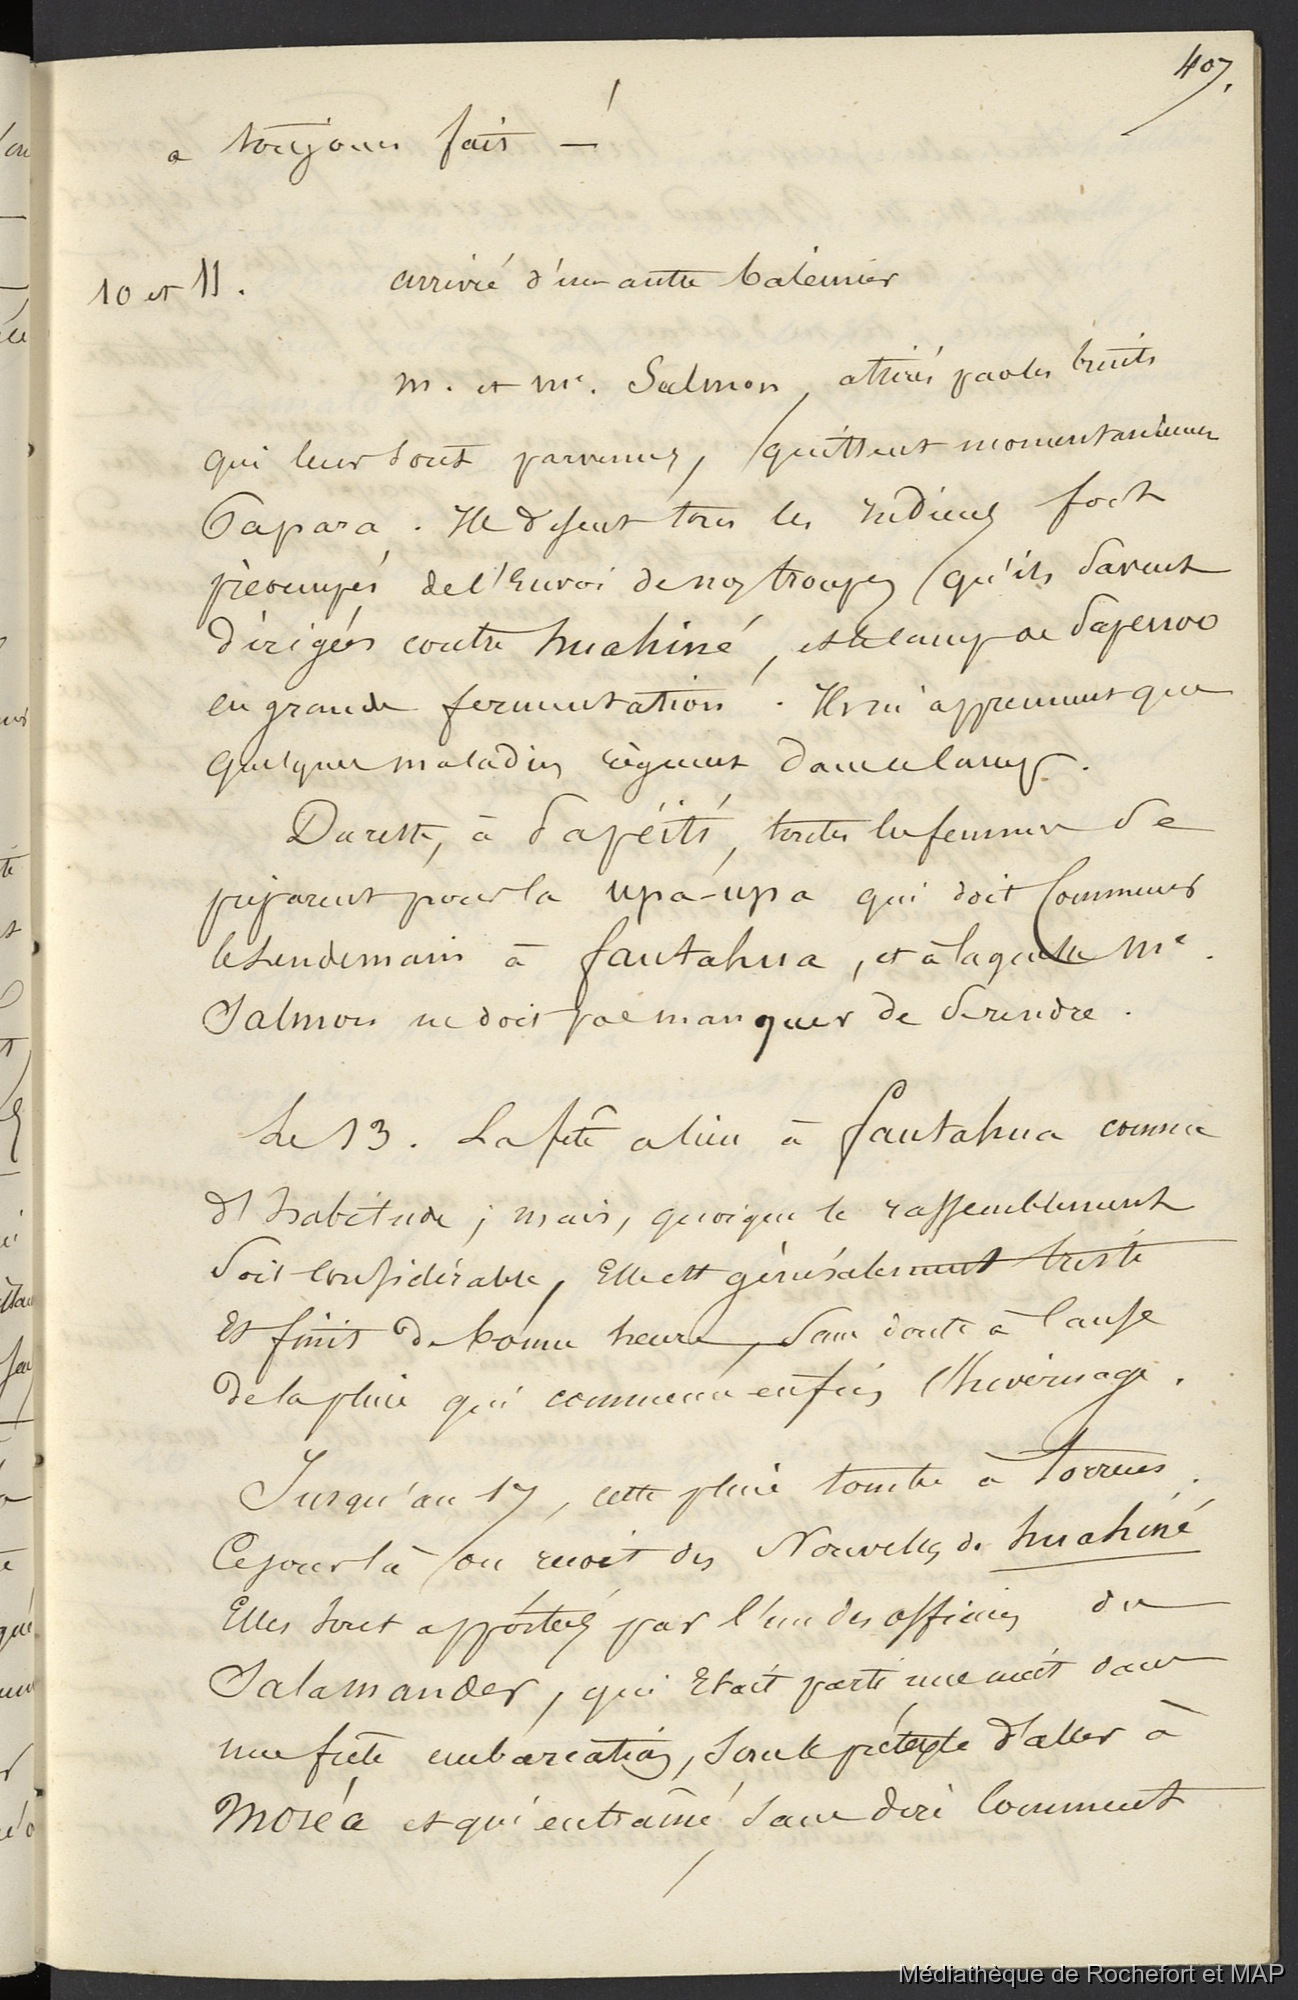 407.
a toujours fait —
10 et 11.
arrivée d'un autre baleinier
M. et Me. Salmon, attirés par les bruits
qui leur sont parvenus, quittent momentanément
Papara. Ils disent tous les Indiens fort
préoccupés de l'Envoi de nos troupes qu'ils savent
dirigées contre huahiné, et le camp de Papenoo
en grande fermentation. Ils m'apprennent que
quelques maladies règnent dans ce camp.
Du reste, à Papéiti, toutes les femmes se
préparent pour la upa-upa qui doit commencer
le Lendemain à fautahua, et à laquelle Me.
Salmon ne doit pas manquer de se rendre.
Le 13. La fête a lieu à fautahua comme
d'habitude ; mais, quoique le rassemblement
soit considérable, Elle est généralement triste
Et finit de bonne heure, sans doute à cause
de la pluie qui commence enfin l'hivernage.
Jusqu'au 17, cette pluie tombe à torrens.
Ce jour là on reçoit des Nouvelles de huahiné
Elles sont apportées par l'un des officiers du
Salamander, qui Etait parti une nuit dans
une frêle embarcation, sous le prétexte d'aller à
Moréa et qui entraîné, sans dire comment
Médiathèque de Rochefort et MAP